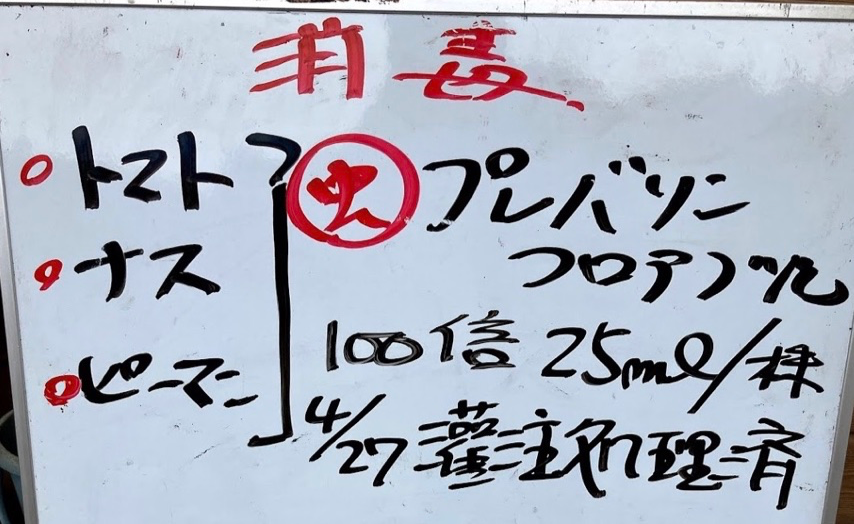 消毒
トマト
ナス
ピーマン
虫 プレバソン
フロアブル
100倍 25ml/株
4/27 灌注処理済